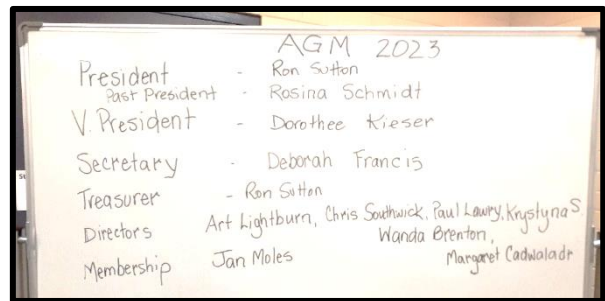 AGM 2023
President - Ron Sutton
Past President - Rosina Schmidt
V. President - Dorothee Kieser
Secretary - Deborah Francis
Treasurer - Ron Sutton
Directors Art Lightburn, Chris Southwick, Paul Lawry, Krystyna S
Wanda Brenton,
Membership Jan Moles Margaret Cadwaladr